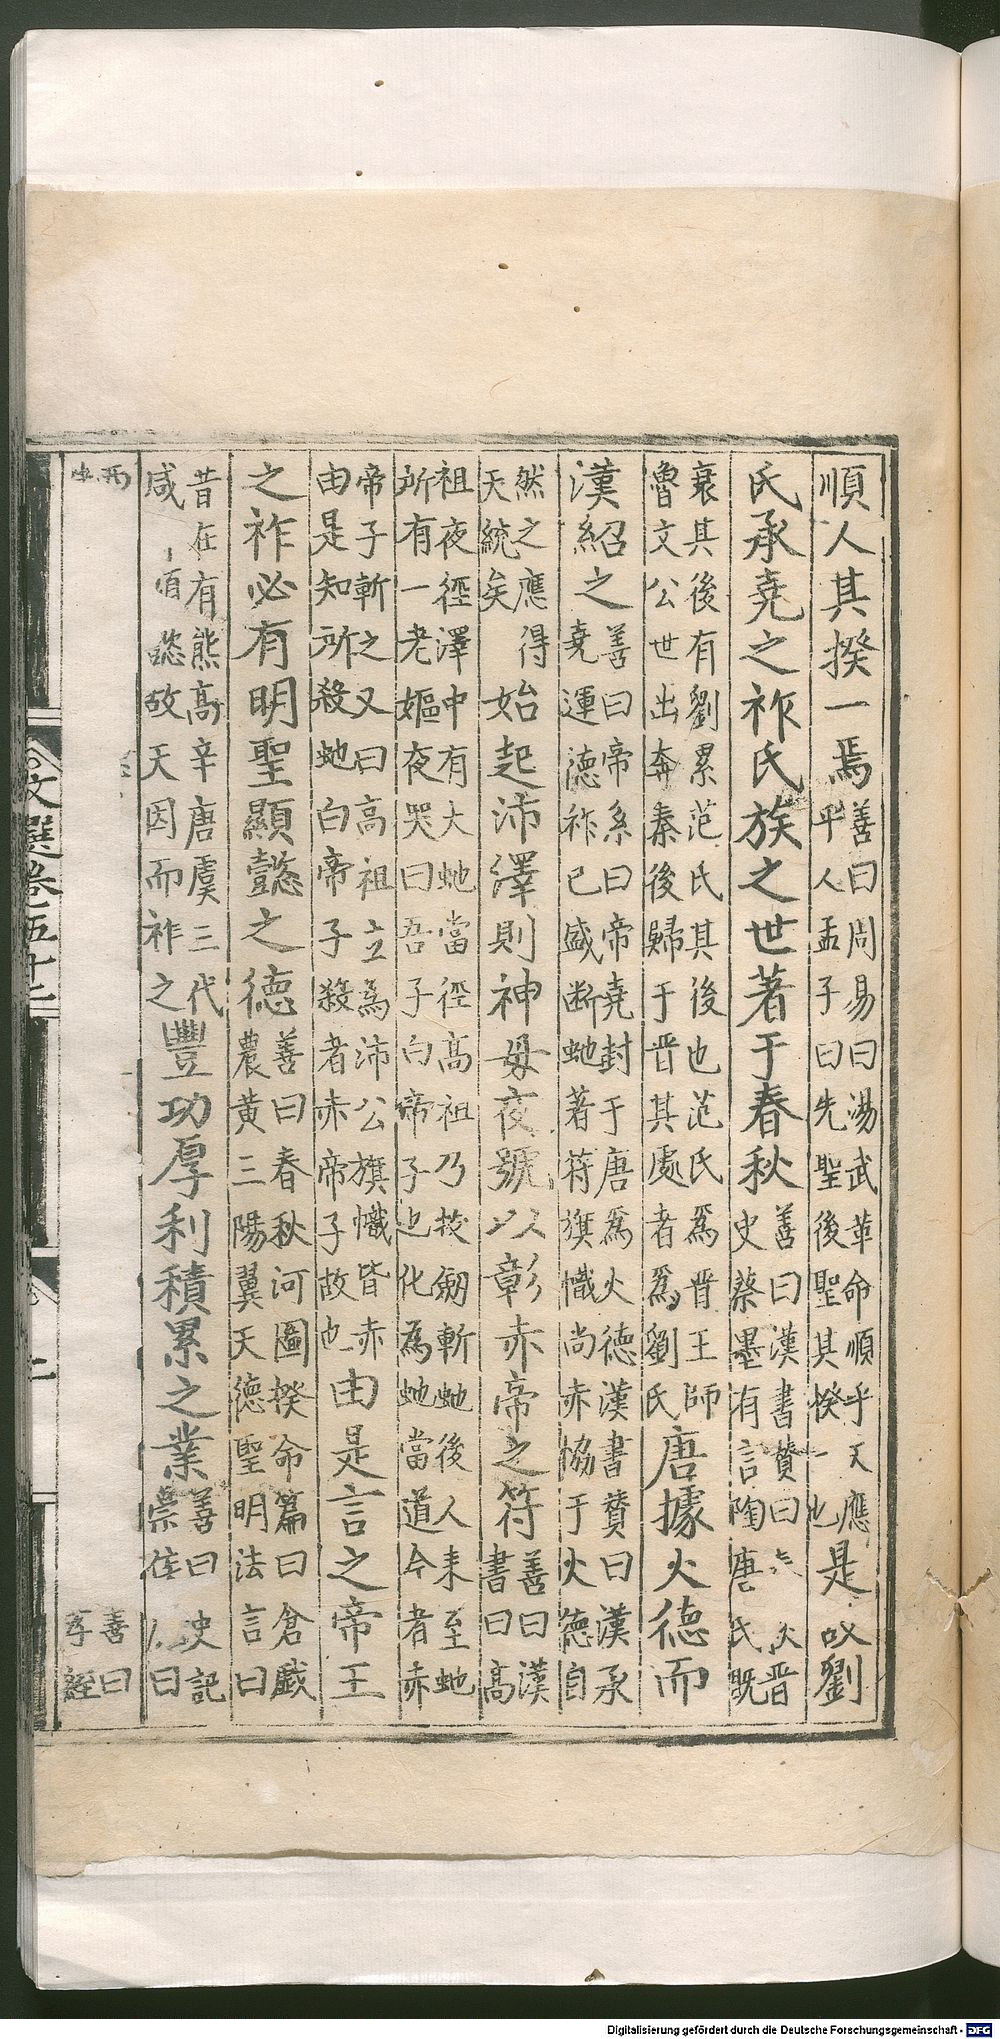 順人其揆一焉善曰周易曰湯武革命順乎天應
乎人孟子曰先聖後聖其揆一也是以劉
氏承堯之祚氏族之世著于春秋善曰漢書贊曰
晋史蔡墨有言陶唐氏既
衰其後有劉累范氏其後也范氏爲晋王師
魯文公世出奔秦後歸于晋其處者爲劉氏唐據火德而
漢紹之善曰帝系曰帝堯封于唐爲火德漢書贊曰漢承
堯運德祚已盛断虵著符旗幟尚赤協于火德自
然之應得
天統矣始起沛澤則神母夜號以彰赤帝之符善曰漢
書曰高
祖夜徑澤中有大虵當徑高祖乃拔劔斬虵後人来至虵
所有一老嫗夜哭曰吾子白帝子也化爲虵當道今者赤
帝子斬之又曰高祖立爲沛公旗幟皆赤
由是知所殺虵白帝子殺者赤帝子故也由是言之帝王
之祚必有明聖顯懿之德善曰春秋河圖揆命篇曰倉戲
農黄三陽翼天德聖明法言曰
昔在有熊高辛唐虞三代
咸有顯懿故天因而祚之豐功厚利積累之業善曰史記
崇侯曰
西善曰
孝經
文選卷五十二
二
Digitalisierung gefördert durch die Deutsche Forschungsgemeinschaft - DFG